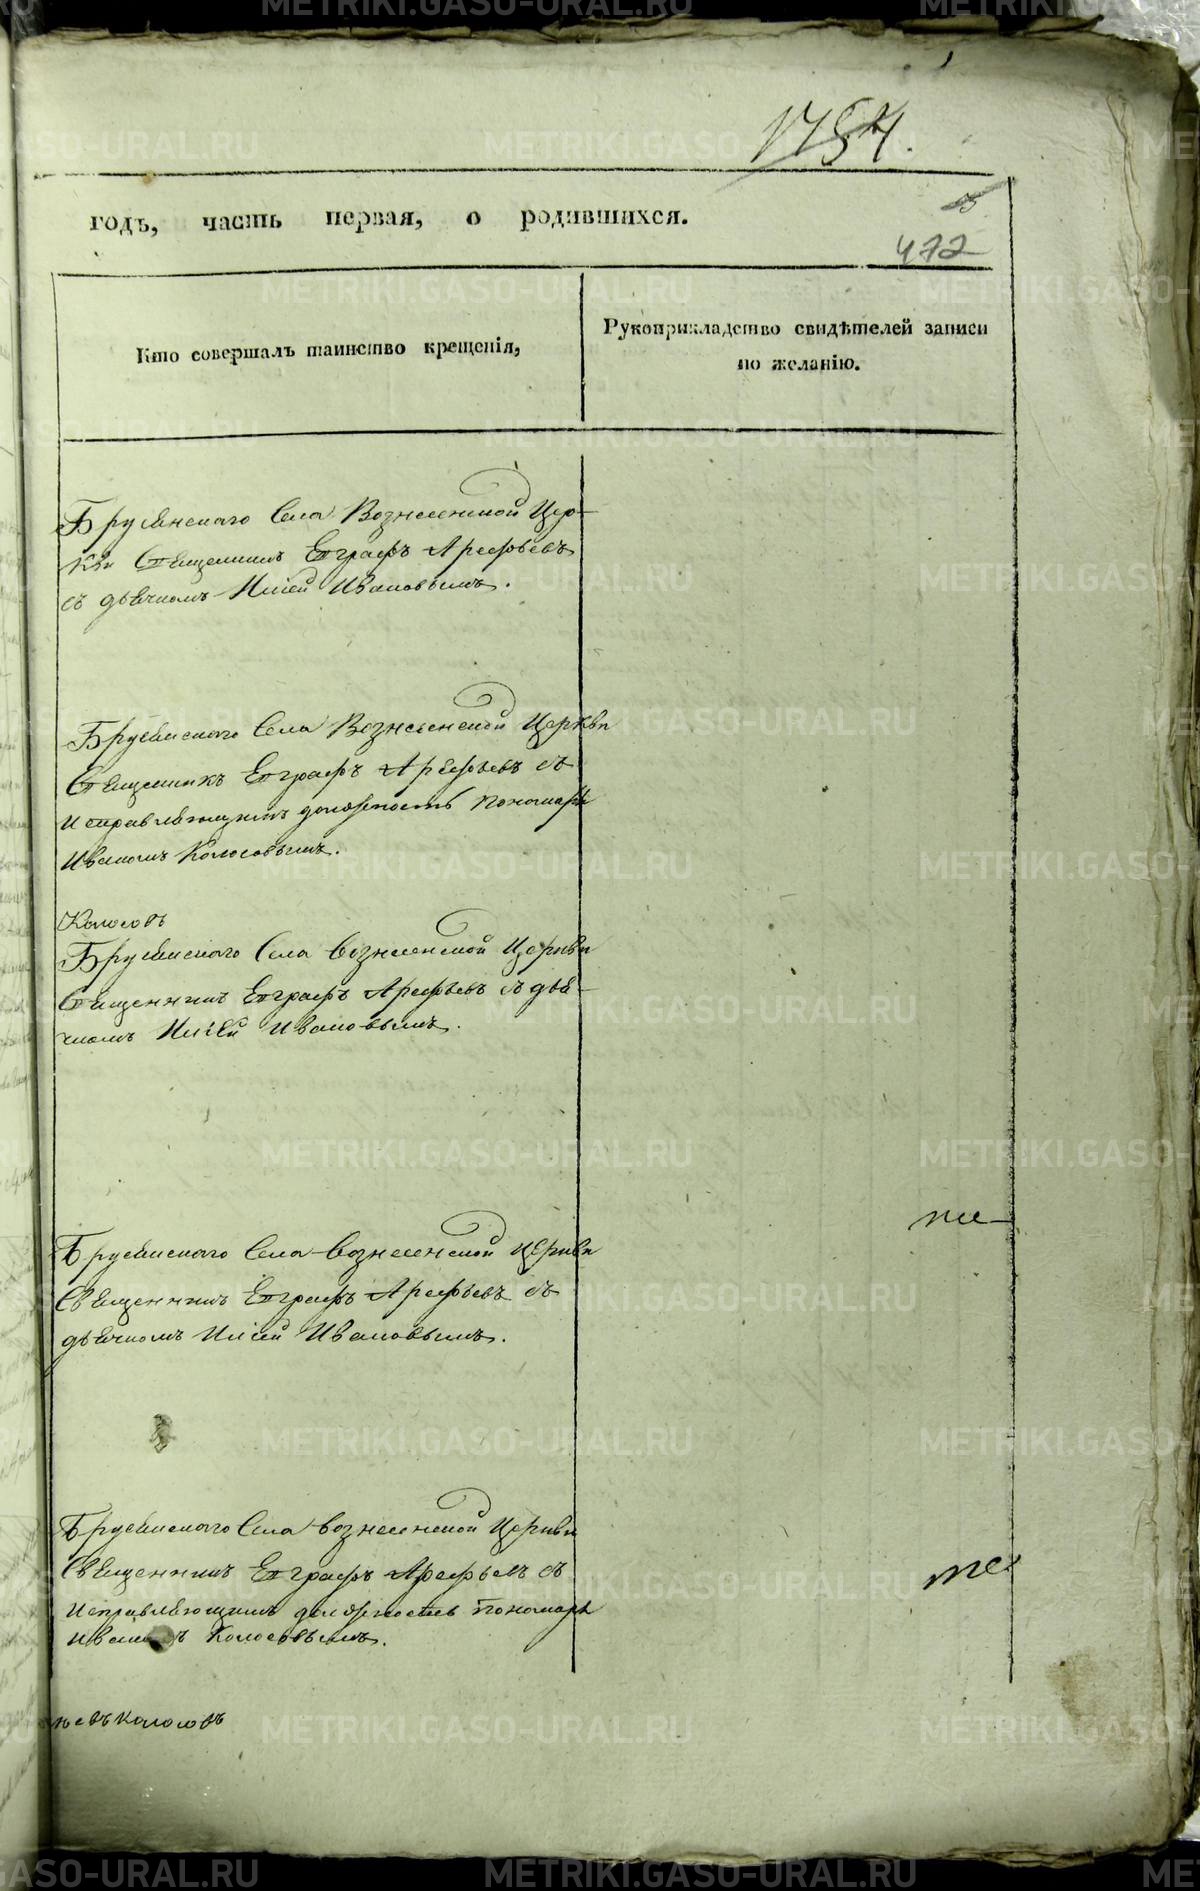 1757.
годъ, часть первая, о родившихся.
472
Кто совершалъ таинство крещенія,
Рукоприкладство свидѣтелей записи
по желанію.
Брусянскаго Села Вознесенской Цер-
кви Священникъ Евграфъ Арефьевъ
съ дьячкомъ Иліей Ивановымъ.
Брусянскаго Села Вознесенской Церкви
Священникъ Евграфъ Арефьевъ съ
исправляющимъ должность пономаря
Иваномъ Колосовымъ.
Колосовъ
Брусянскаго Села Вознесенской Церкви
Священникъ Евграфъ Арефьевъ съ дья-
чкомъ Иліей Ивановымъ.
Брусянскаго Села Вознесенской Церкви
Священникъ Евграфъ Арефьевъ съ
дьячкомъ Иліей Ивановымъ.
Брусянскаго Села Вознесенской Церкви
Священникъ Евграфъ Арефьевъ съ
исправляющимъ должность пономаря
Иваномъ Колосовымъ.
Колосовъ
METRIKI.GASO-URAL.RU